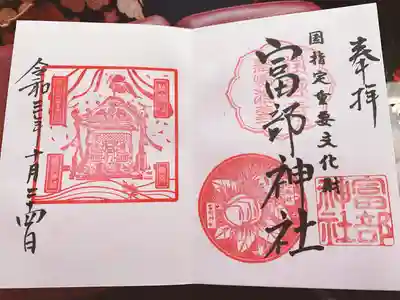 奉拝
国指定重要文化財
富部神社
富部
神社
令和三年十月二十四日